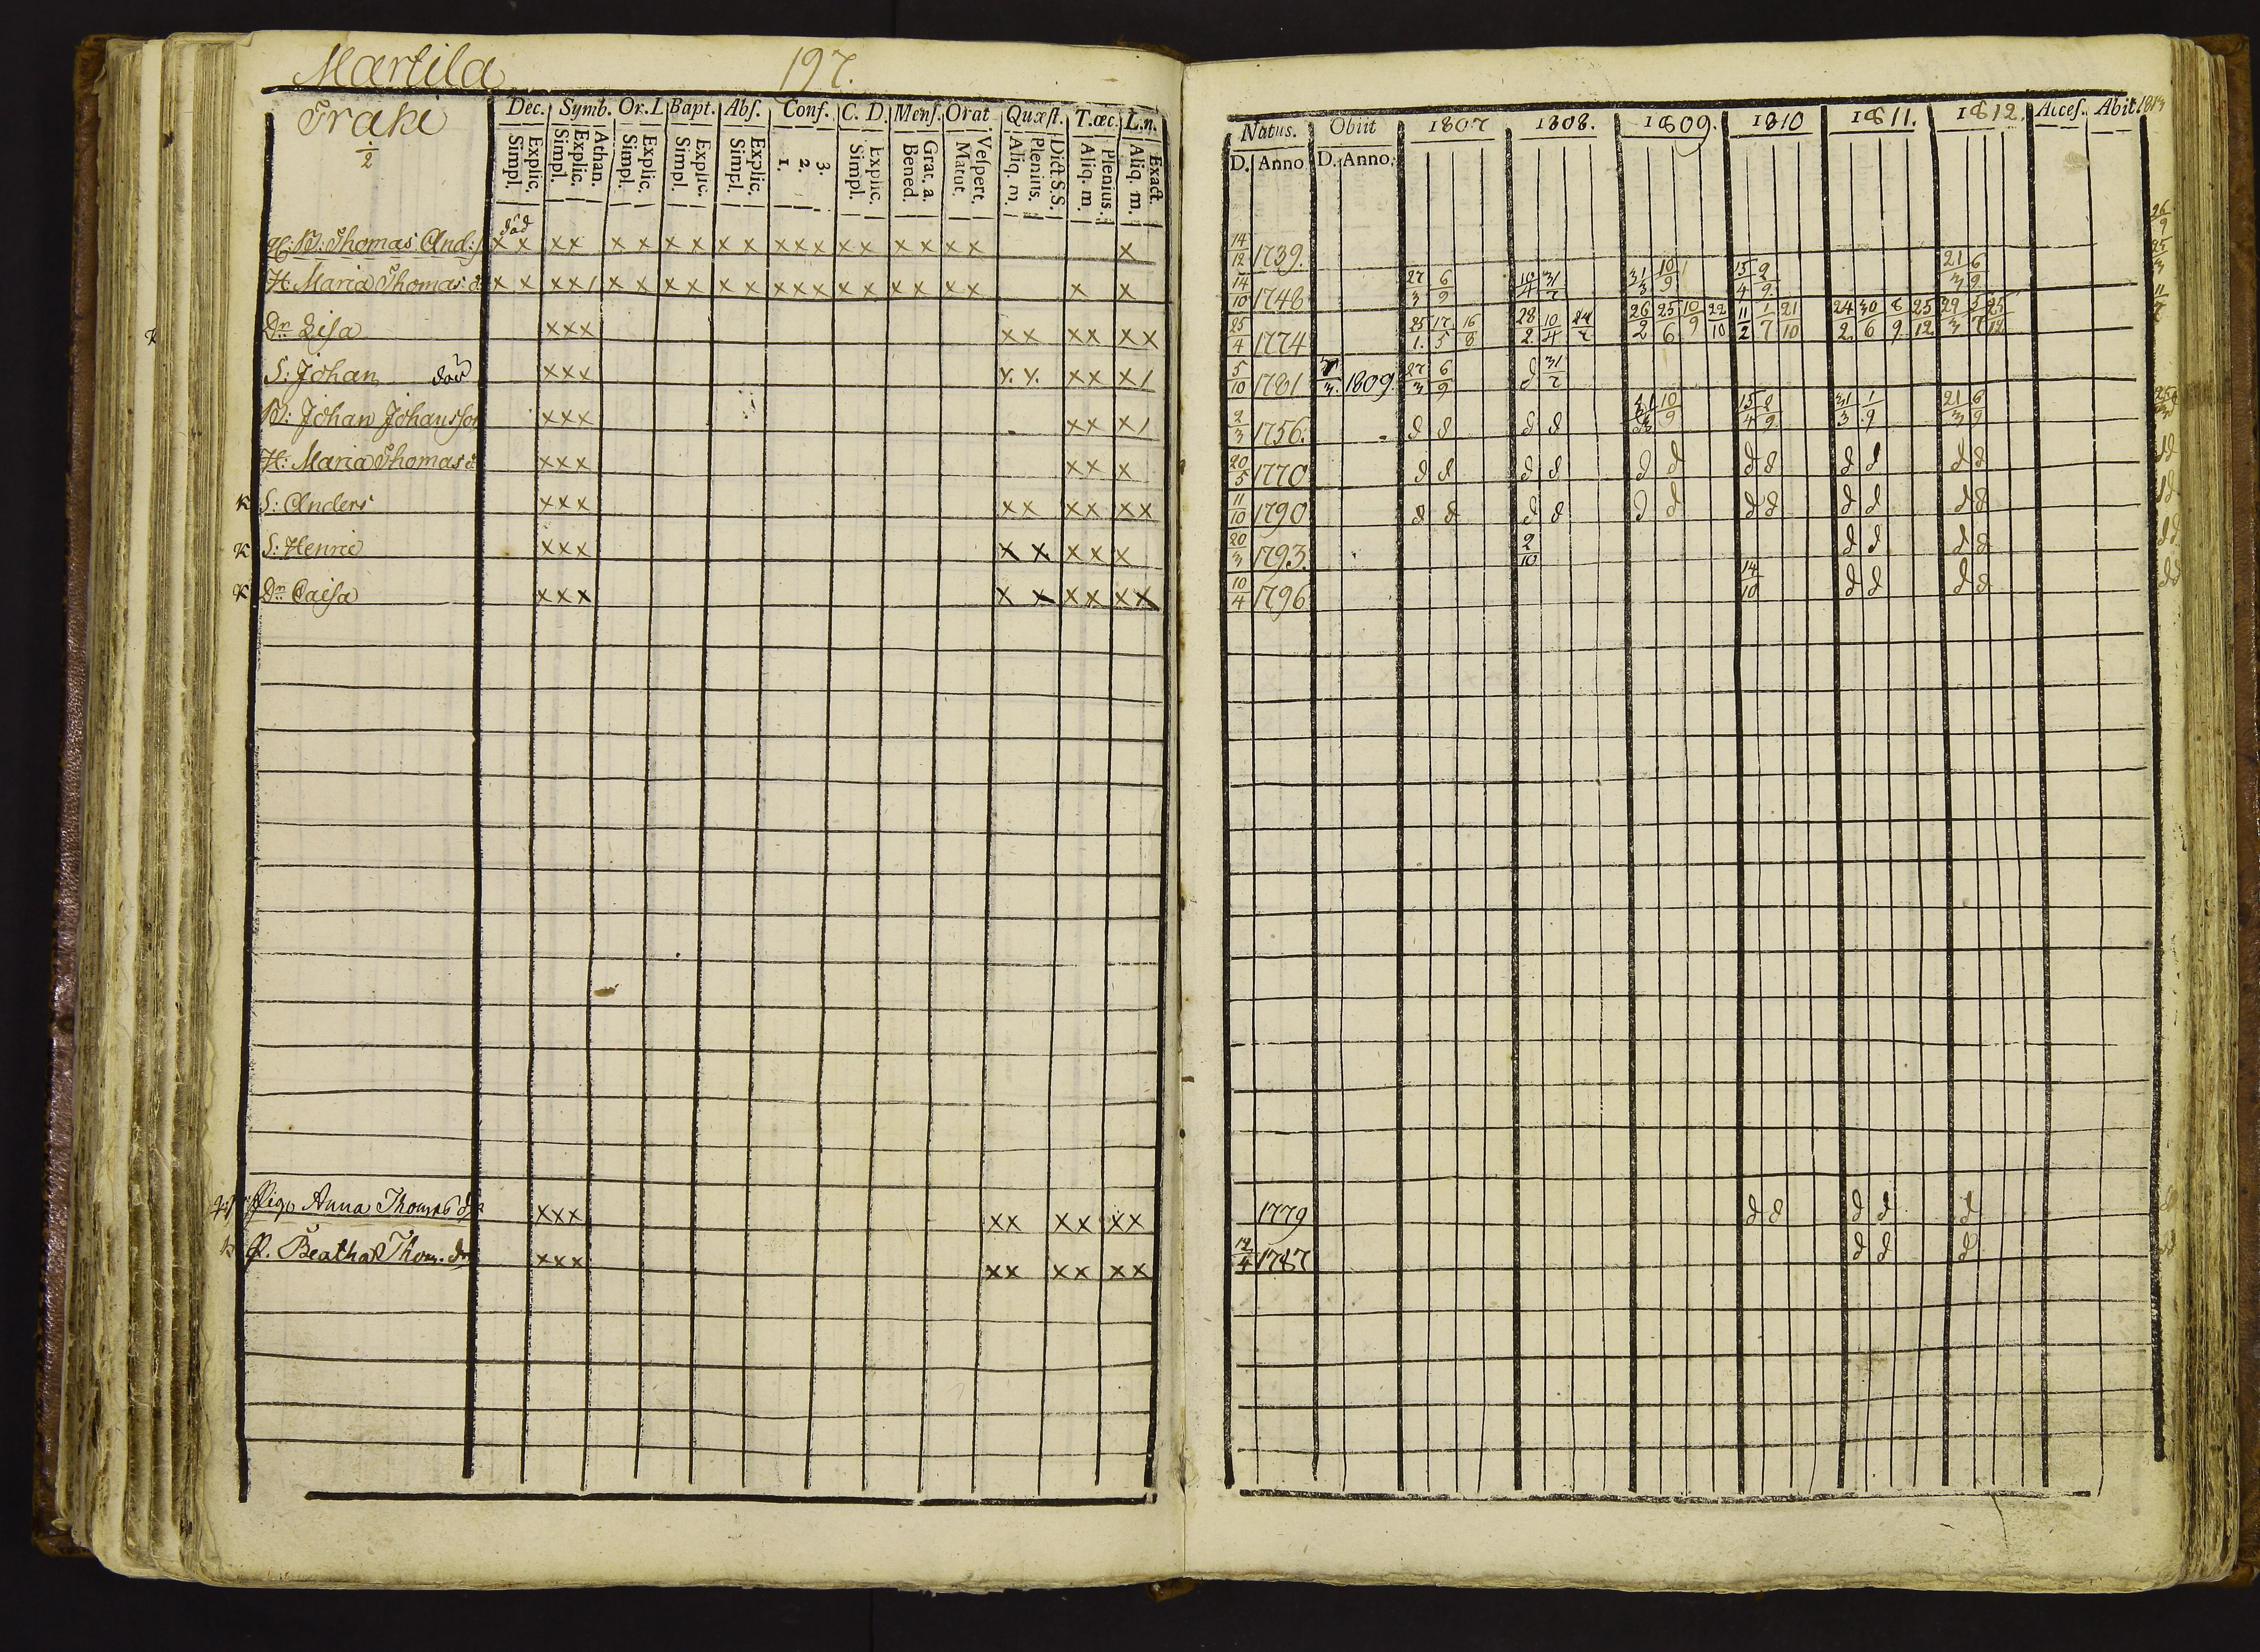 Martila 197.
Fraki
1/2
Dec. Symb. Or. Bapt. Abs. Conf. C. D. Mens. Orat. Quæst. T. œc. L. n.
Explic. Simpl. Athan. Explic. Simpl. Explic. Simpl. Explic. Simpl. Explic. Simpl. 3. 2. 1. Explic. Simpl. Grat. a. Bened. Vespert. Matut. Dict. S. S. Plenius. Aliq. m. Plenius. Aliq. m. Exact. Aliq. m.
Natus. Obiit 1807 1808. 1809. 1810 1811. 1812. Acces. Abit. 1813
D. Anno D. Anno.
död
B: Thomas And: x x x x x x x x x x x x x x x x x x x x 14/12 1739.
H: Maria Thomas: d x x x x / x x x x x x x x x x x x x x x x x 14/10 1748 27/3 6/9 10/4 31/7 31/3 10/9 15/4 2/9 21/3 6/9
Dr Lisa x x x x x x x x x 25/4 1774 25/1. 17/5 16/8 28/2. 10/4 24/7 26/2 25/6 10/9 22/10 11/2 1/7 21/10 24/2 30/6 8/9 25/12 29/3 5/7 25/12
S: Johan död x x x x. x. x x x / 5/10 1781 7/3. 1809. 27/3 6/9 d 31/7
B: Johan Johansson x x x x x x / 2/3 1756. d d d d 31/3 10/9 15/4 2/9 31/3 1/9 21/3 6/9
H: Maria Thomas d: x x x x x x 20/5 1770 d d d d d d d d d d d d d d
K S: Anders x x x x x x x x x 11/10 1790 d d d d d d d d d d d d d d
K S: Henric x x x x x x x x 20/3 1793. 2/10 d d d d d d
K Dr Caisa x x x x x x x x x 10/4 1796 14/10 d d d d d d
Pig. Anna Thomas dr x x x x x x x x x 1779 d d d d d
P. Beatha Thom. dr x x x x x x x x x 12/4 1787 d d d